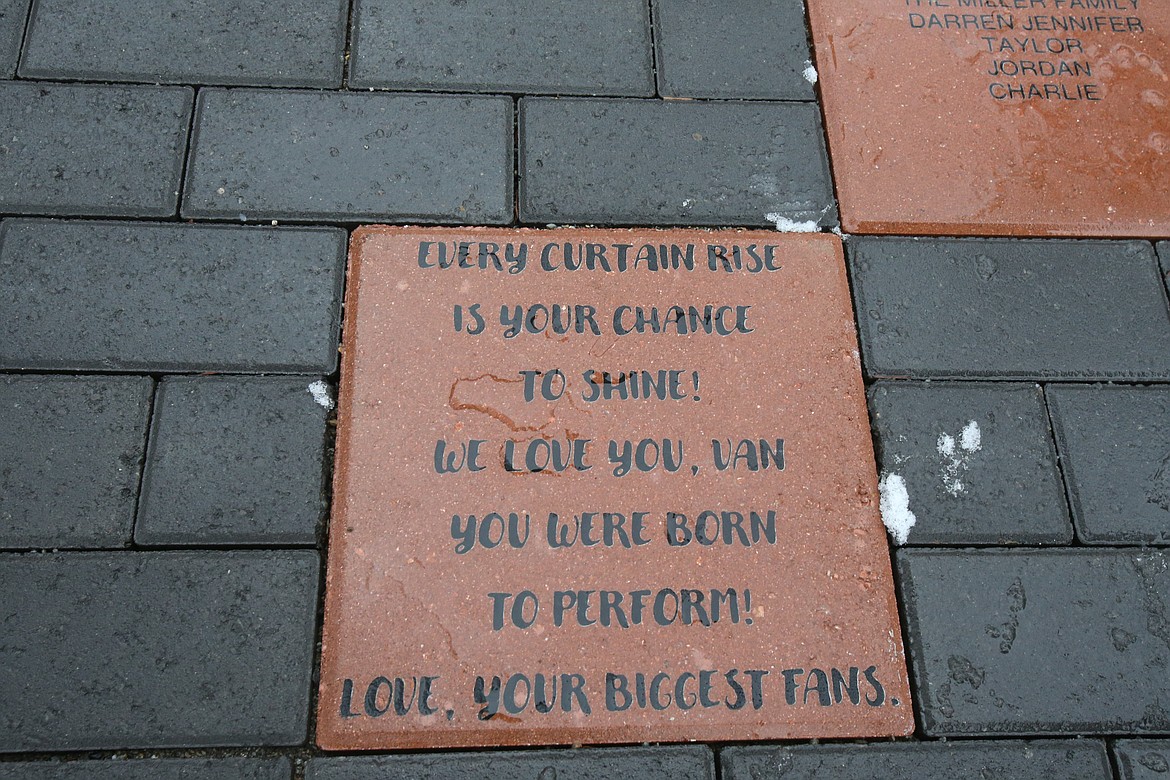 THE MILLER FAMILY
DARREN JENNIFER
TAYLOR
JORDAN
CHARLIE
EVERY CURTAIN RISE
IS YOUR CHANCE
TO SHINE!
WE LOVE YOU, VAN
YOU WERE BORN
TO PERFORM!
LOVE, YOUR BIGGEST FANS.